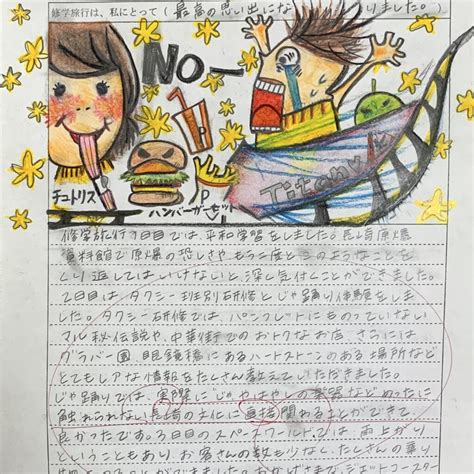 修学旅行は、私にとって（最高の思い出になりました。）
NOー
Titan
チュトリス
ハンバーガーセット
P
修学旅行1日目では、平和学習をしました。長崎原爆
資料館で原爆の恐しさや、もう二度とこのようなことをく
り返してはいけないと、深く気付くことができました。
2日目は、タクシー班別研修とじゃ踊り体験をしまし
た。タクシー研修では、パンフレットにものっていない
マル秘伝説や、中華街でのおトクなお店、さらには
グラバー園、眼鏡橋にあるハートストーンのある場所など
とてもレアな情報をたくさん教えていただきました。
じゃ踊りでは、実際にじゃやはやしの楽器などめったに
触れられない長崎の文化に直接関わることができて
良かったです。3日目のスペースワールドでは、雨上がり
ということもあり、お客さんの数も少なく、たくさんの乗り